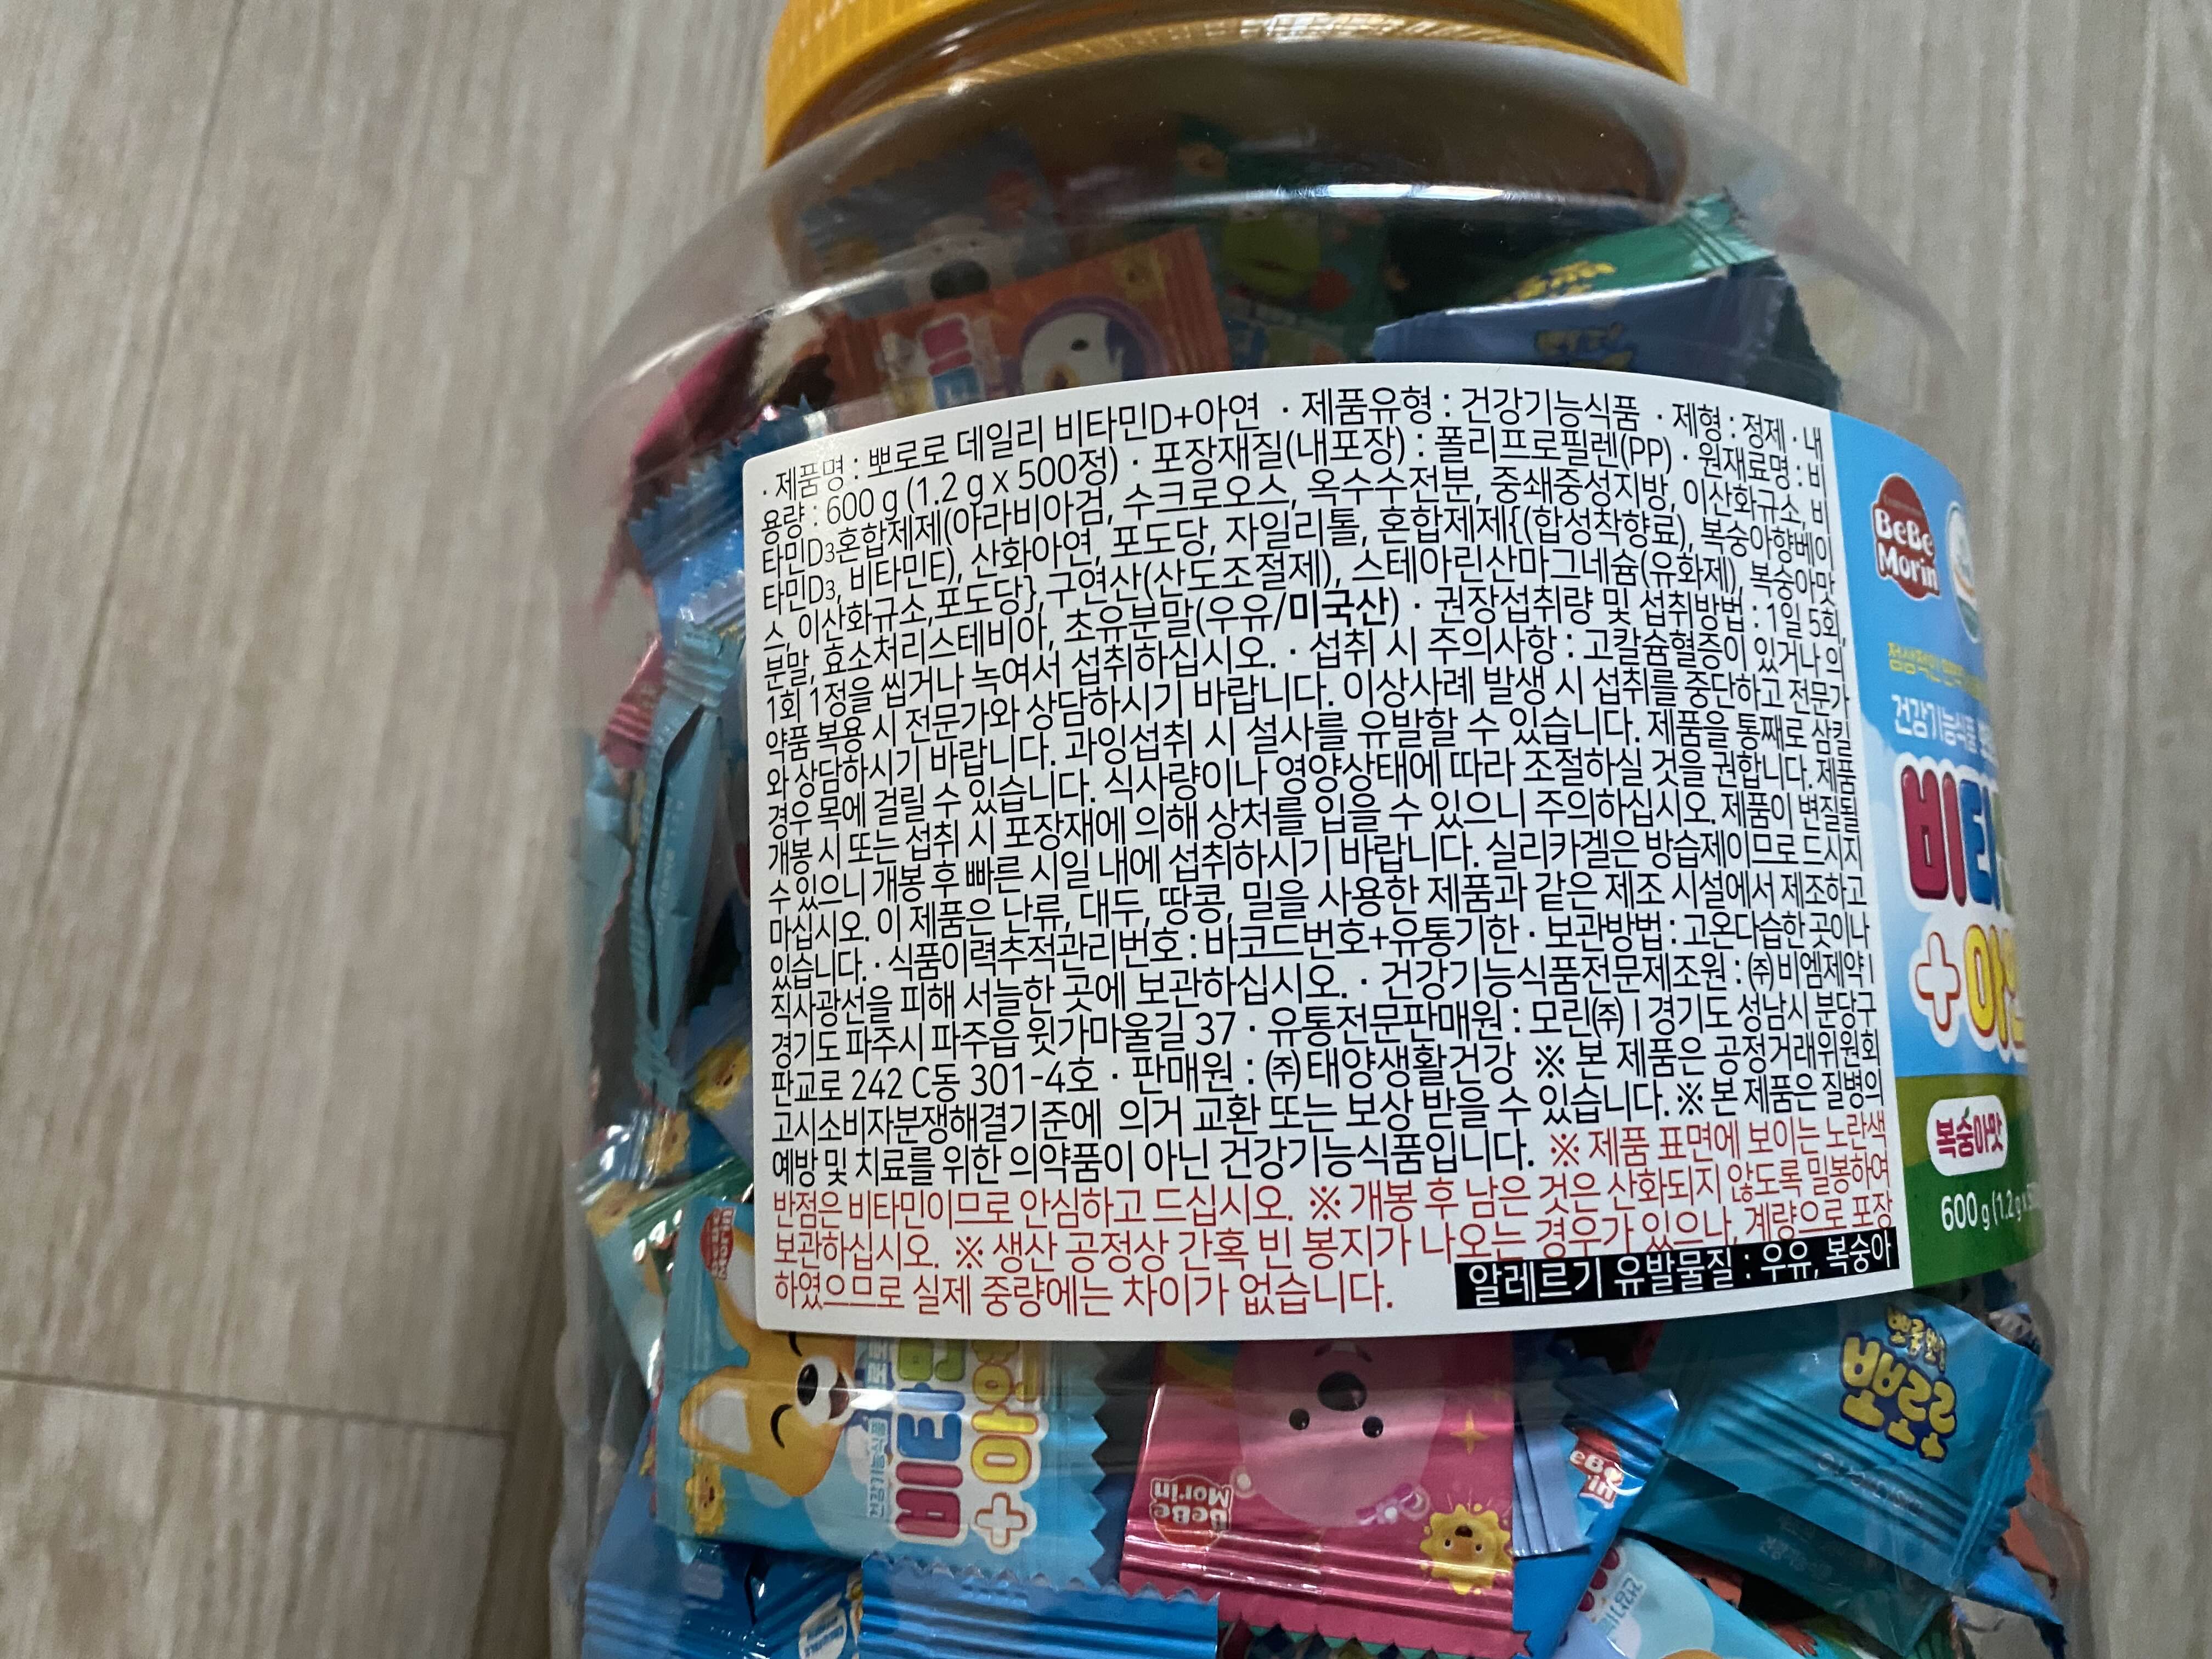 · 제품명 : 뽀로로 데일리 비타민D+아연 · 제품유형 : 건강기능식품 · 제형 : 정제 · 내
용량 : 600 g (1.2 g x 500정) · 포장재질(내포장) : 폴리프로필렌(PP) · 원재료명 : 비
타민D3혼합제제(아라비아검, 수크로오스, 옥수수전분, 중쇄중성지방, 이산화규소, 비
타민D3, 비타민E), 산화아연, 포도당, 자일리톨, 혼합제제{(합성착향료), 복숭아향베이
스, 이산화규소,포도당}, 구연산(산도조절제), 스테아린산마그네슘(유화제), 복숭아맛
분말, 효소처리스테비아, 초유분말(우유/미국산) · 권장섭취량 및 섭취방법 : 1일 5회,
1회 1정을 씹거나 녹여서 섭취하십시오. · 섭취 시 주의사항 : 고칼슘혈증이 있거나 의
약품 복용 시 전문가와 상담하시기 바랍니다. 이상사례 발생 시 섭취를 중단하고 전문가
와 상담하시기 바랍니다. 과잉섭취 시 설사를 유발할 수 있습니다. 제품을 통째로 삼킬
경우 목에 걸릴 수 있습니다. 식사량이나 영양상태에 따라 조절하실 것을 권합니다. 제품
개봉 시 또는 섭취 시 포장재에 의해 상처를 입을 수 있으니 주의하십시오. 제품이 변질될
수 있으니 개봉 후 빠른 시일 내에 섭취하시기 바랍니다. 실리카겔은 방습제이므로 드시지
마십시오. 이 제품은 난류, 대두, 땅콩, 밀을 사용한 제품과 같은 제조 시설에서 제조하고
있습니다. · 식품이력추적관리번호 : 바코드번호+유통기한 · 보관방법 : 고온다습한 곳이나
직사광선을 피해 서늘한 곳에 보관하십시오. · 건강기능식품전문제조원 : ㈜비엠제약 |
경기도 파주시 파주읍 윗가마울길 37 · 유통전문판매원 : 모린㈜ | 경기도 성남시 분당구
판교로 242 C동 301-4호 · 판매원 : ㈜태양생활건강 ※ 본 제품은 공정거래위원회
고시소비자분쟁해결기준에 의거 교환 또는 보상 받을 수 있습니다. ※ 본 제품은 질병의
예방 및 치료를 위한 의약품이 아닌 건강기능식품입니다. ※ 제품 표면에 보이는 노란색
반점은 비타민이므로 안심하고 드십시오. ※ 개봉 후 남은 것은 산화되지 않도록 밀봉하여
보관하십시오. ※ 생산 공정상 간혹 빈 봉지가 나오는 경우가 있으나, 계량으로 포장
하였으므로 실제 중량에는 차이가 없습니다.
알레르기 유발물질 : 우유, 복숭아
BeBe
Morin
건강기능식품
비타
+아연
복숭아맛
600 g (1.2 g x
건강기능식품
비타민
+아연
BeBe
Morin
뽀롱뽀롱
뽀로로